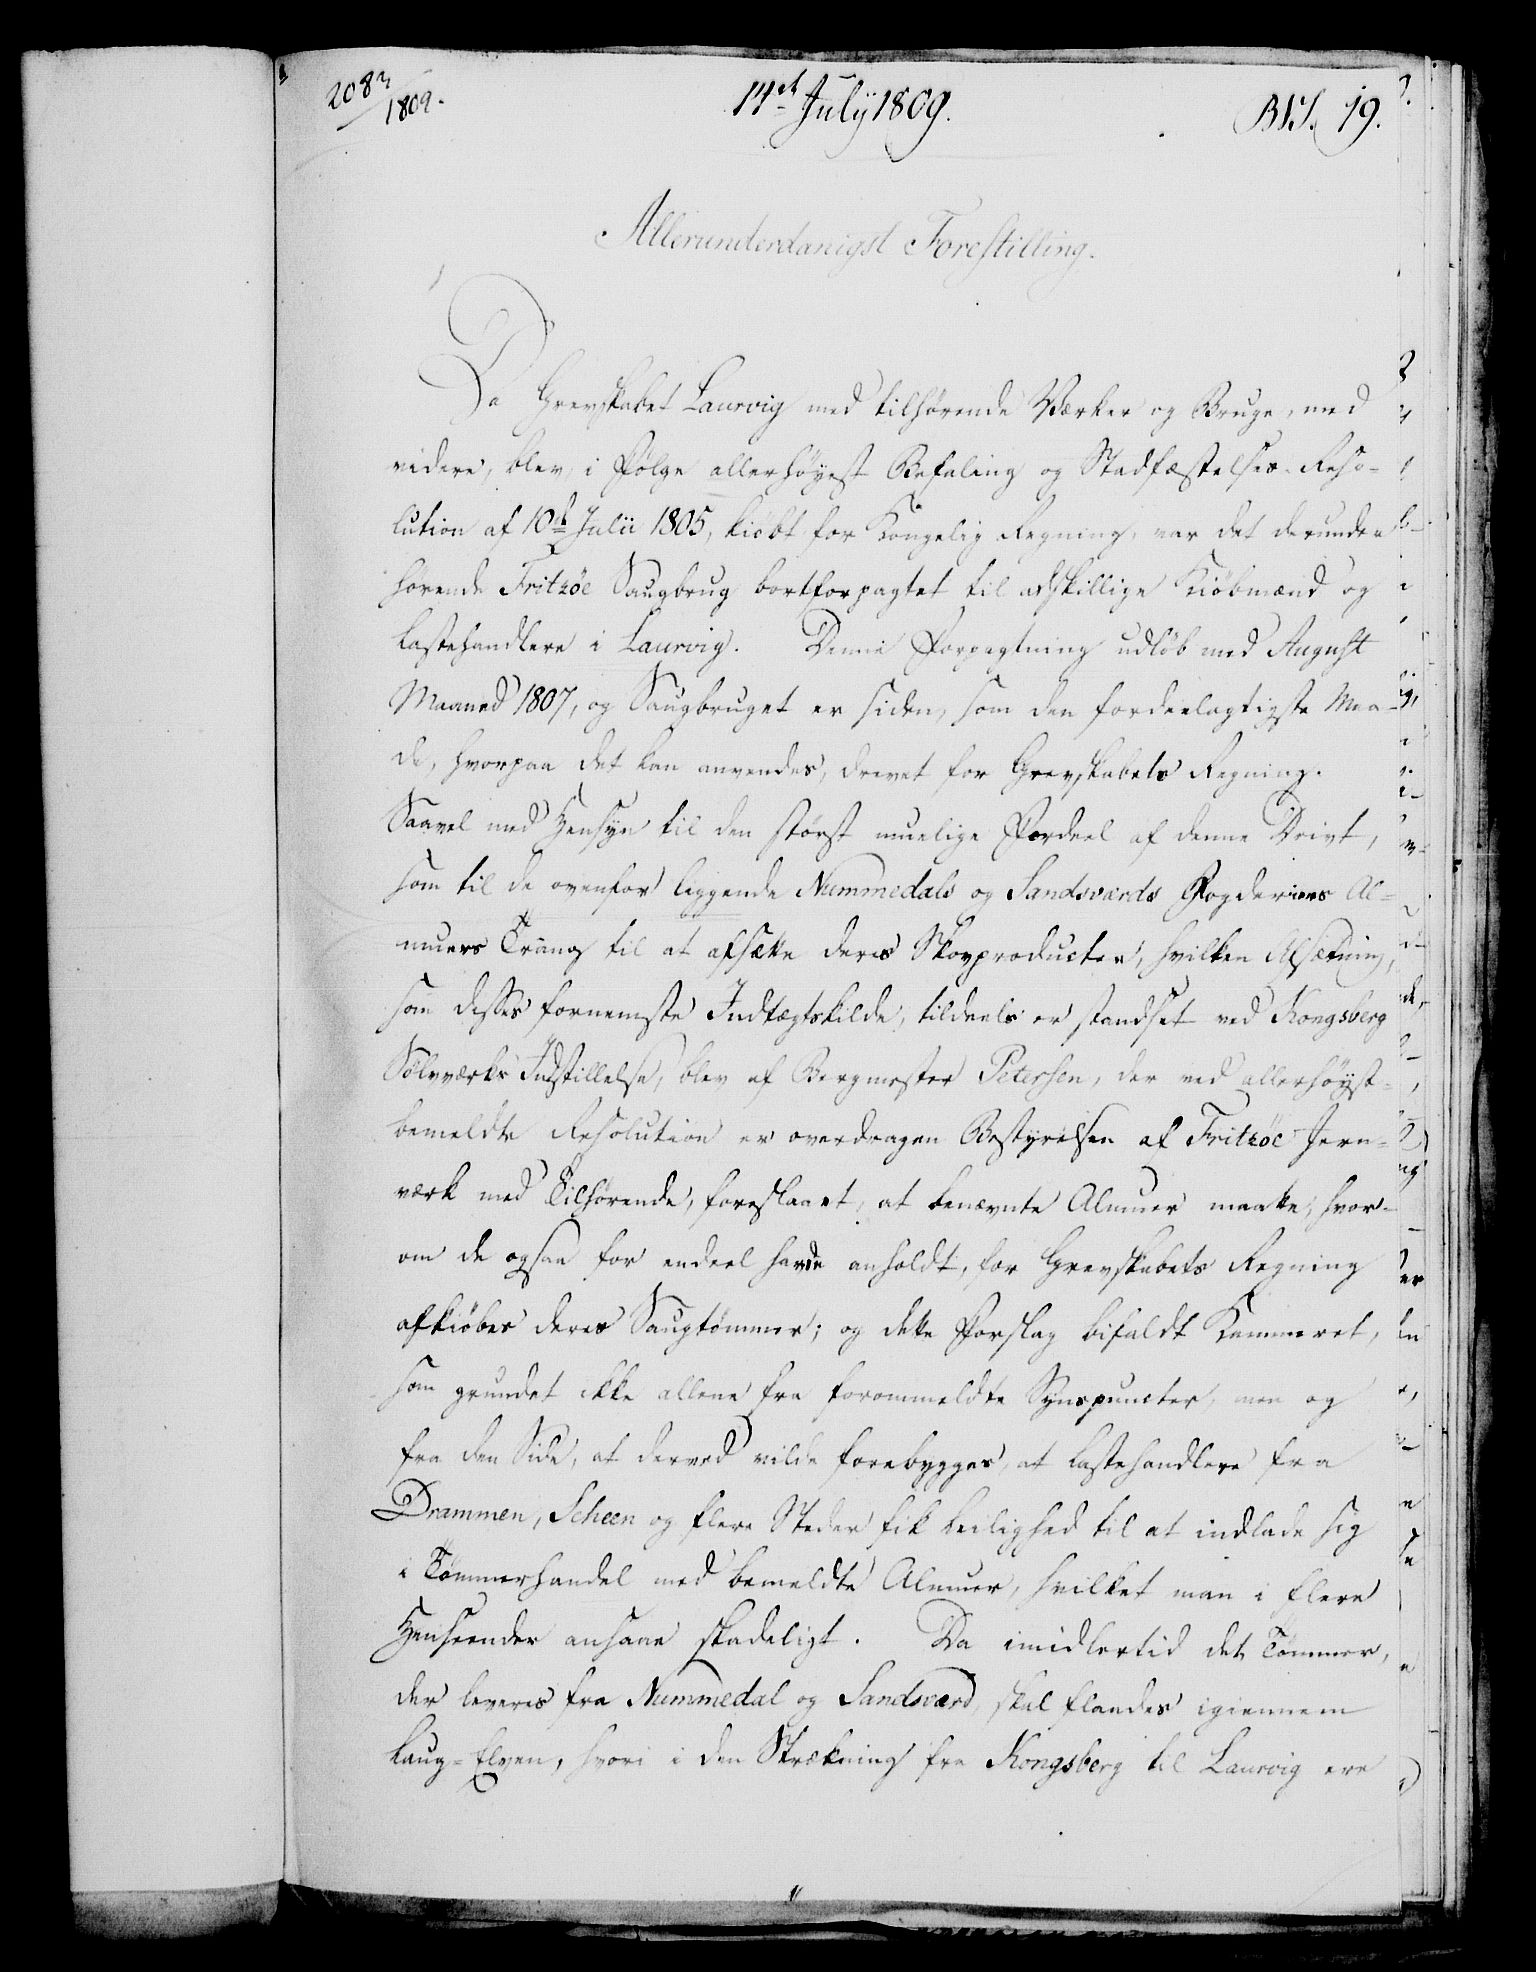 2083/1809.
14de July 1809.
19.
Allerunderdanigst Forestilling.
Da Grevskabet Laurvig med tilhørende Værker og Bruge, med
videre, blev, i Følge allerhøyest Befaling og Stadfæstelses-Reso-
lution af 10de Julii 1805, kiøbt for Kongelig Regning, var det derunder
hørende Fritzøe Saugbrug bortforpagtet til adskillige Kiøbmænd og
Lastehandlere i Laurvig. Denne Forpagtning udløb med August
Maaned 1807, og Saugbruget er siden, som den fordeelagtigste Maa-
de, hvorpaa det kan anvendes, drevet for Grevskabets Regning.
Saavel med Hensyn til den størst muelige Fordeel af denne Drivt,
som til de ovenfor liggende Nummedals og Sandsværds Fogderiers Al-
muers Trang til at afsætte deres Skovproducter, hvilken Afsætning,
som disses fornemste Indtægtskilde, tildeels er standset ved Kongsberg
Sølvværks Indstillelse, blev af Bergmester Petersen, der ved allerhøyst-
bemeldte Resolution er overdragen Bestyrelsen af Fritzøe Jern-
værk med Tilhørende, foreslaaet, at benævnte Almuer maatte, hvor-
om de ogsaa for endeel havde anholdt, for Grevskabets Regning
afkiøbes deres Saugtømmer; og dette Forslag bifaldt Kammeret,
som grundet ikke allene fra forommeldte Synspuncter, men og
fra den Side, at derved vilde forebygges, at Lastehandlere fra
Drammen, Scheen og flere Steder fik Leilighed til at indlade sig
i Tømmerhandel med bemeldte Almuer, hvilket man i flere
Henseender ansaae skadeligt. Da imidlertid det Tømmer,
der leveres fra Nummedal og Sandsværd, skal flaades igiennem
Laug-Elven, hvori i den Strækning fra Kongsberg til Laurvig ere